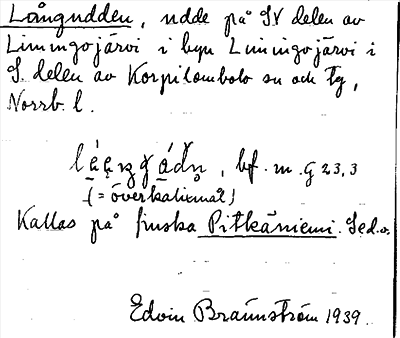 Långudden, udde på SV delen av
Liningojärvi i byn Liningojärvi i
S. delen av Korpilombolo sn och tg,
Norrb. l.
, bf. m. G 23,3
(= överkalixmål)
Kallas på finska Pitkäniemi. Se d.o.
Edvin Brännström 1939.